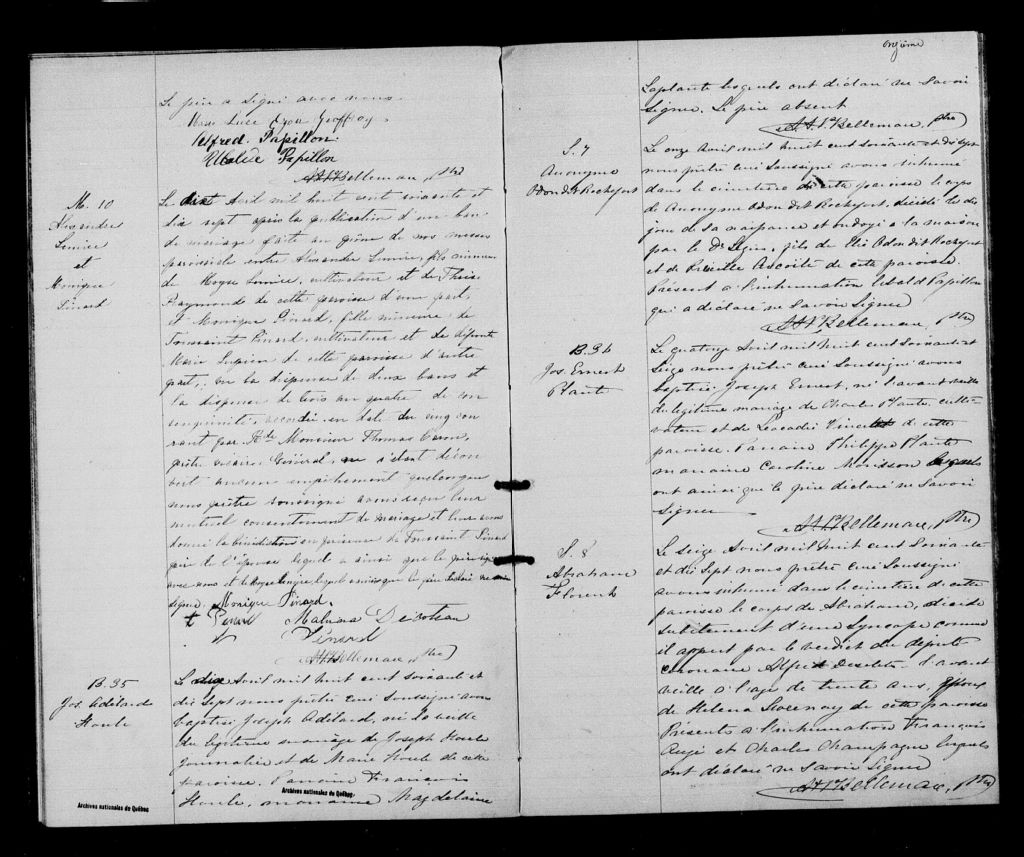 Le père a signé avec nous.
Marie Luce Azon Geoffroy
Alfred Papillon
Papillon
Bellemare, Ptre
M. 10
Alexandre
Lemire
et
Monique
Pinard
Le dix Avril mil huit cent soixante et
dix sept après la publication d'un ban
de mariage faite au prône de nos messes
paroissiales entre Alexandre Lemire, fils mineur
de Moyse Lemire, cultivateur et de Thérèse
Raymonde de cette paroisse d'une part,
et Monique Pinard, fille mineure de
Toussaint Pinard cultivateur et de défunte
Marie de cette paroisse d'autre
part, vu la dispense de deux bans et
la dispense de trois au quatre de con
sanguinité, accordée en date du cinq cou
rant par Monsieur Thomas Caron,
prêtre vicaire Général, ne s'étant décou
vert aucun empêchement quelconque
nous prêtre soussigné avons reçu leur
mutuel consentement de mariage et leur avons
donné la bénédiction en présence de Toussaint Pinard
père de l'épouse lequel a ainsi que
avec nous et de Moyse Lemire lequel
signer. Monique Pinard.
Pinard Malvina
Pinard
Bellemare, Ptre
B. 35
Jos. Adélard
Houle
Le dix Avril mil huit cent soixante et
dix Sept nous prêtre curé Soussigné avons
baptisé Joseph Adélard, né la veille
du légitime mariage de Joseph Houle
journalier et de Marie Houle de cette
paroisse. Parrain François
Houle, marraine Magdelaine
Archives nationales du Québec
Archives nationales du Québec
onzième
Laplante lesquels ont déclaré ne Savoir
Signer. Le père absent
Bellemare, Ptre
S. 7
Anonyme
Odon dit Rochefort
Le onze Avril mil huit cent soixante et dix sept
nous prêtre curé soussigné avons inhumé
dans le cimetière de cette paroisse le corps
de Anonyme Odon dit Rochefort, décédé le
jour de sa naissance et ondoyé à la maison
par le Dr fils de Odon dit Rochefort
et de de cette paroisse.
Présent à l'inhumation Papillon
qui a déclaré ne Savoir Signer
Bellemare, Ptre
B. 36
Jos. Ernest
Plante
Le quatorze Avril mil huit cent Soixante et
Seize nous prêtre curé Soussigné avons
baptisé Joseph Ernest, né l'avant veille
du légitime mariage de Charles Plante culti-
vateur et de Léocadie Vincent de cette
paroisse. Parrain Philippe Plante
marraine Caroline Morisson lesquels
ont ainsi que le père déclaré ne Savoir
Signer
Bellemare, Ptre
S. 8
Abraham
Florent
Le seize Avril mil huit cent Soixante
et dix Sept nous prêtre curé Soussigné
avons inhumé dans le cimetière de cette
paroisse le corps de Abraham, décédé
subitement d'une Syncope comme
il appert par le verdict du député
coronaire Alfred Desilets l'avant
veille à l'age de trente ans, Epoux
de Helena de cette paroisse
Présents à l'inhumation François
Augé et Charles Champagne lesquels
ont déclaré ne savoir Signer
Bellemare, Ptre